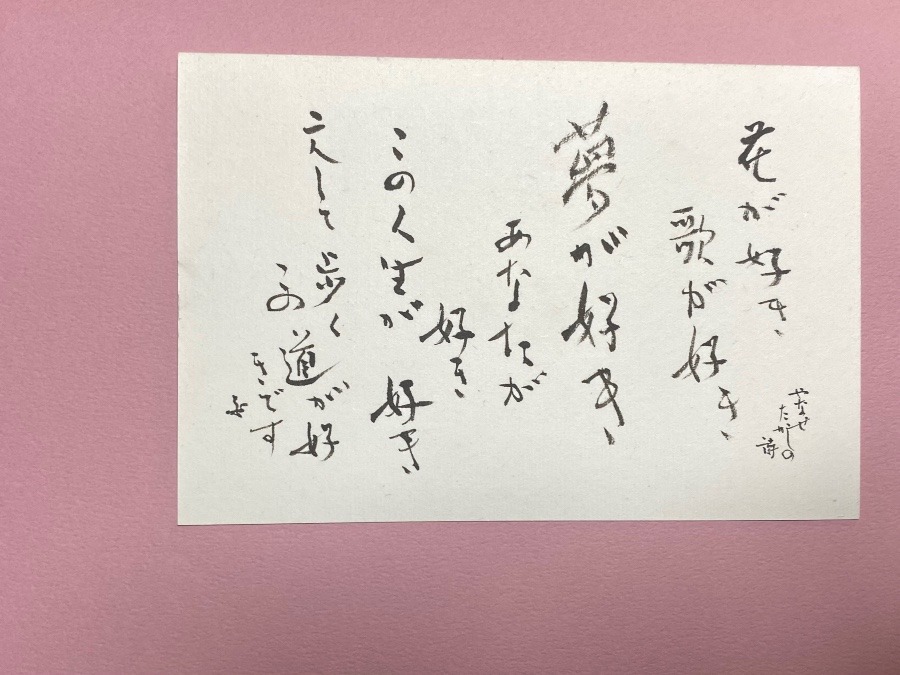 やなせ
たかしの
詩
花が好き
歌が好き
夢が好き
あなたが
好き
この人生が 好き
二人して歩く
この道が好
きです